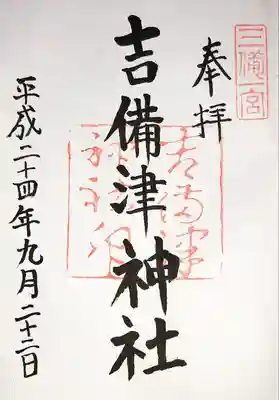 三備一宮
奉拝
吉備津神社
吉備津神社印
平成二十四年九月二十二日